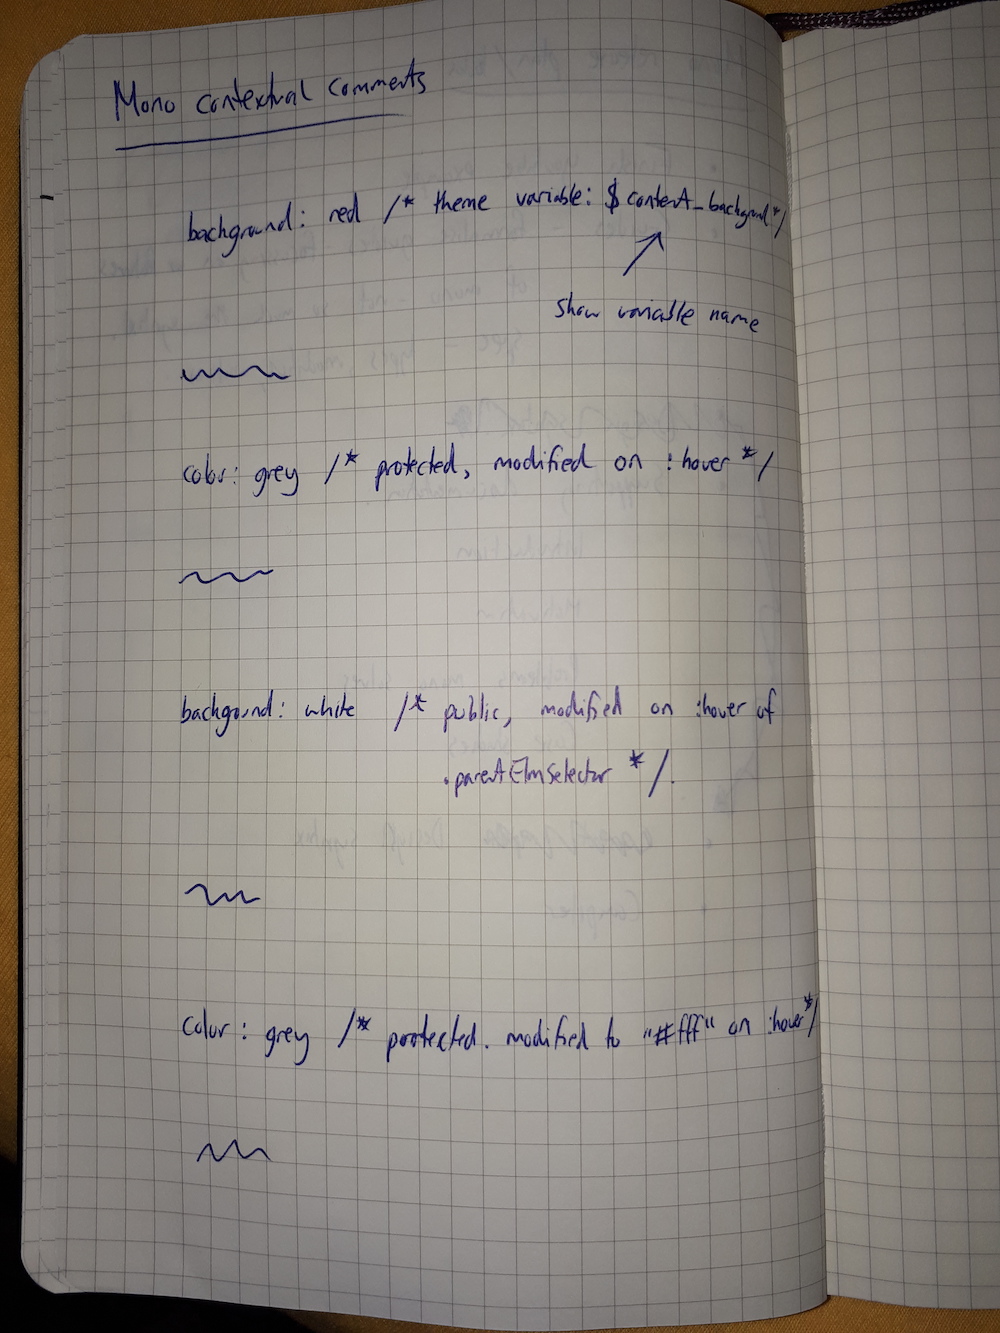 Mono contextual comments
background: red /* theme variable: $context_background */
show variable name
color: grey /* protected, modified on :hover */
background: white /* public, modified on :hover of
.parentElmSelector */.
color: grey /* protected. modified to "#fff" on :hover */